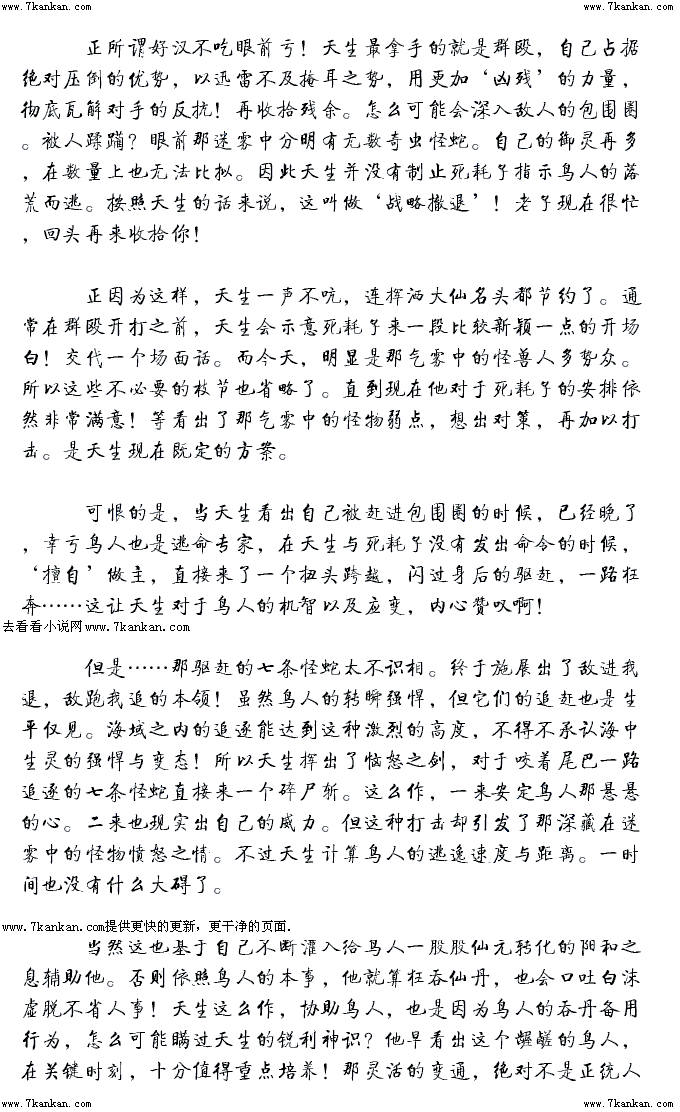 www.7kankan.com www.7kankan.com
正所谓好汉不吃眼前亏！天生最拿手的就是群殴，自己占据
绝对压倒的优势，以迅雷不及掩耳之势，用更加‘凶残’的力量，
彻底瓦解对手的反抗！再收拾残余。怎么可能会深入敌人的包围圈
。被人蹂躏？眼前那迷雾中分明有无数奇虫怪蛇。自己的御灵再多
，在数量上也无法比拟。因此天生并没有制止死耗子指示鸟人的落
荒而逃。按照天生的话来说，这叫做‘战略撤退’！老子现在很忙
，回头再来收拾你！
正因为这样，天生一声不吭，连挥洒大仙名头都节约了。通
常在群殴开打之前，天生会示意死耗子来一段比较新颖一点的开场
白！交代一个场面话。而今天，明显是那气雾中的怪兽人多势众。
所以这些不必要的枝节也省略了。直到现在他对于死耗子的安排依
然非常满意！等看出了那气雾中的怪物弱点，想出对策，再加以打
击。是天生现在既定的方案。
可恨的是，当天生看出自己被赶进包围圈的时候，已经晚了
，幸亏鸟人也是逃命专家，在天生与死耗子没有发出命令的时候，
‘擅自’做主，直接来了一个扭头跨越，闪过身后的驱赶，一路狂
奔……这让天生对于鸟人的机智以及应变，内心赞叹啊！
去看看小说网www.7kankan.com
但是……那驱赶的七条怪蛇太不识相。终于施展出了敌进我
退，敌跑我追的本领！虽然鸟人的转瞬强悍，但它们的追赶也是生
平仅见。海域之内的追逐能达到这种激烈的高度，不得不承认海中
生灵的强悍与变态！所以天生挥出了恼怒之剑，对于咬着尾巴一路
追逐的七条怪蛇直接来一个碎尸斩。这么作，一来安定鸟人那悬悬
的心。二来也现实出自己的威力。但这种打击却引发了那深藏在迷
雾中的怪物愤怒之情。不过天生计算鸟人的逃逸速度与距离。一时
间也没有什么大碍了。
www.7kankan.com提供更快的更新，更干净的页面.
当然这也基于自己不断灌入给鸟人一股股仙元转化的阳和之
息辅助他。否则依照鸟人的本事，他就算狂吞仙丹，也会口吐白沫
虚脱不省人事！天生这么作，协助鸟人，也是因为鸟人的吞丹备用
行为，怎么可能瞒过天生的锐利神识？他早看出这个龌龊的鸟人，
在关键时刻，十分值得重点培养！那灵活的变通，绝对不是正统人
www.7kankan.com www.7kankan.com